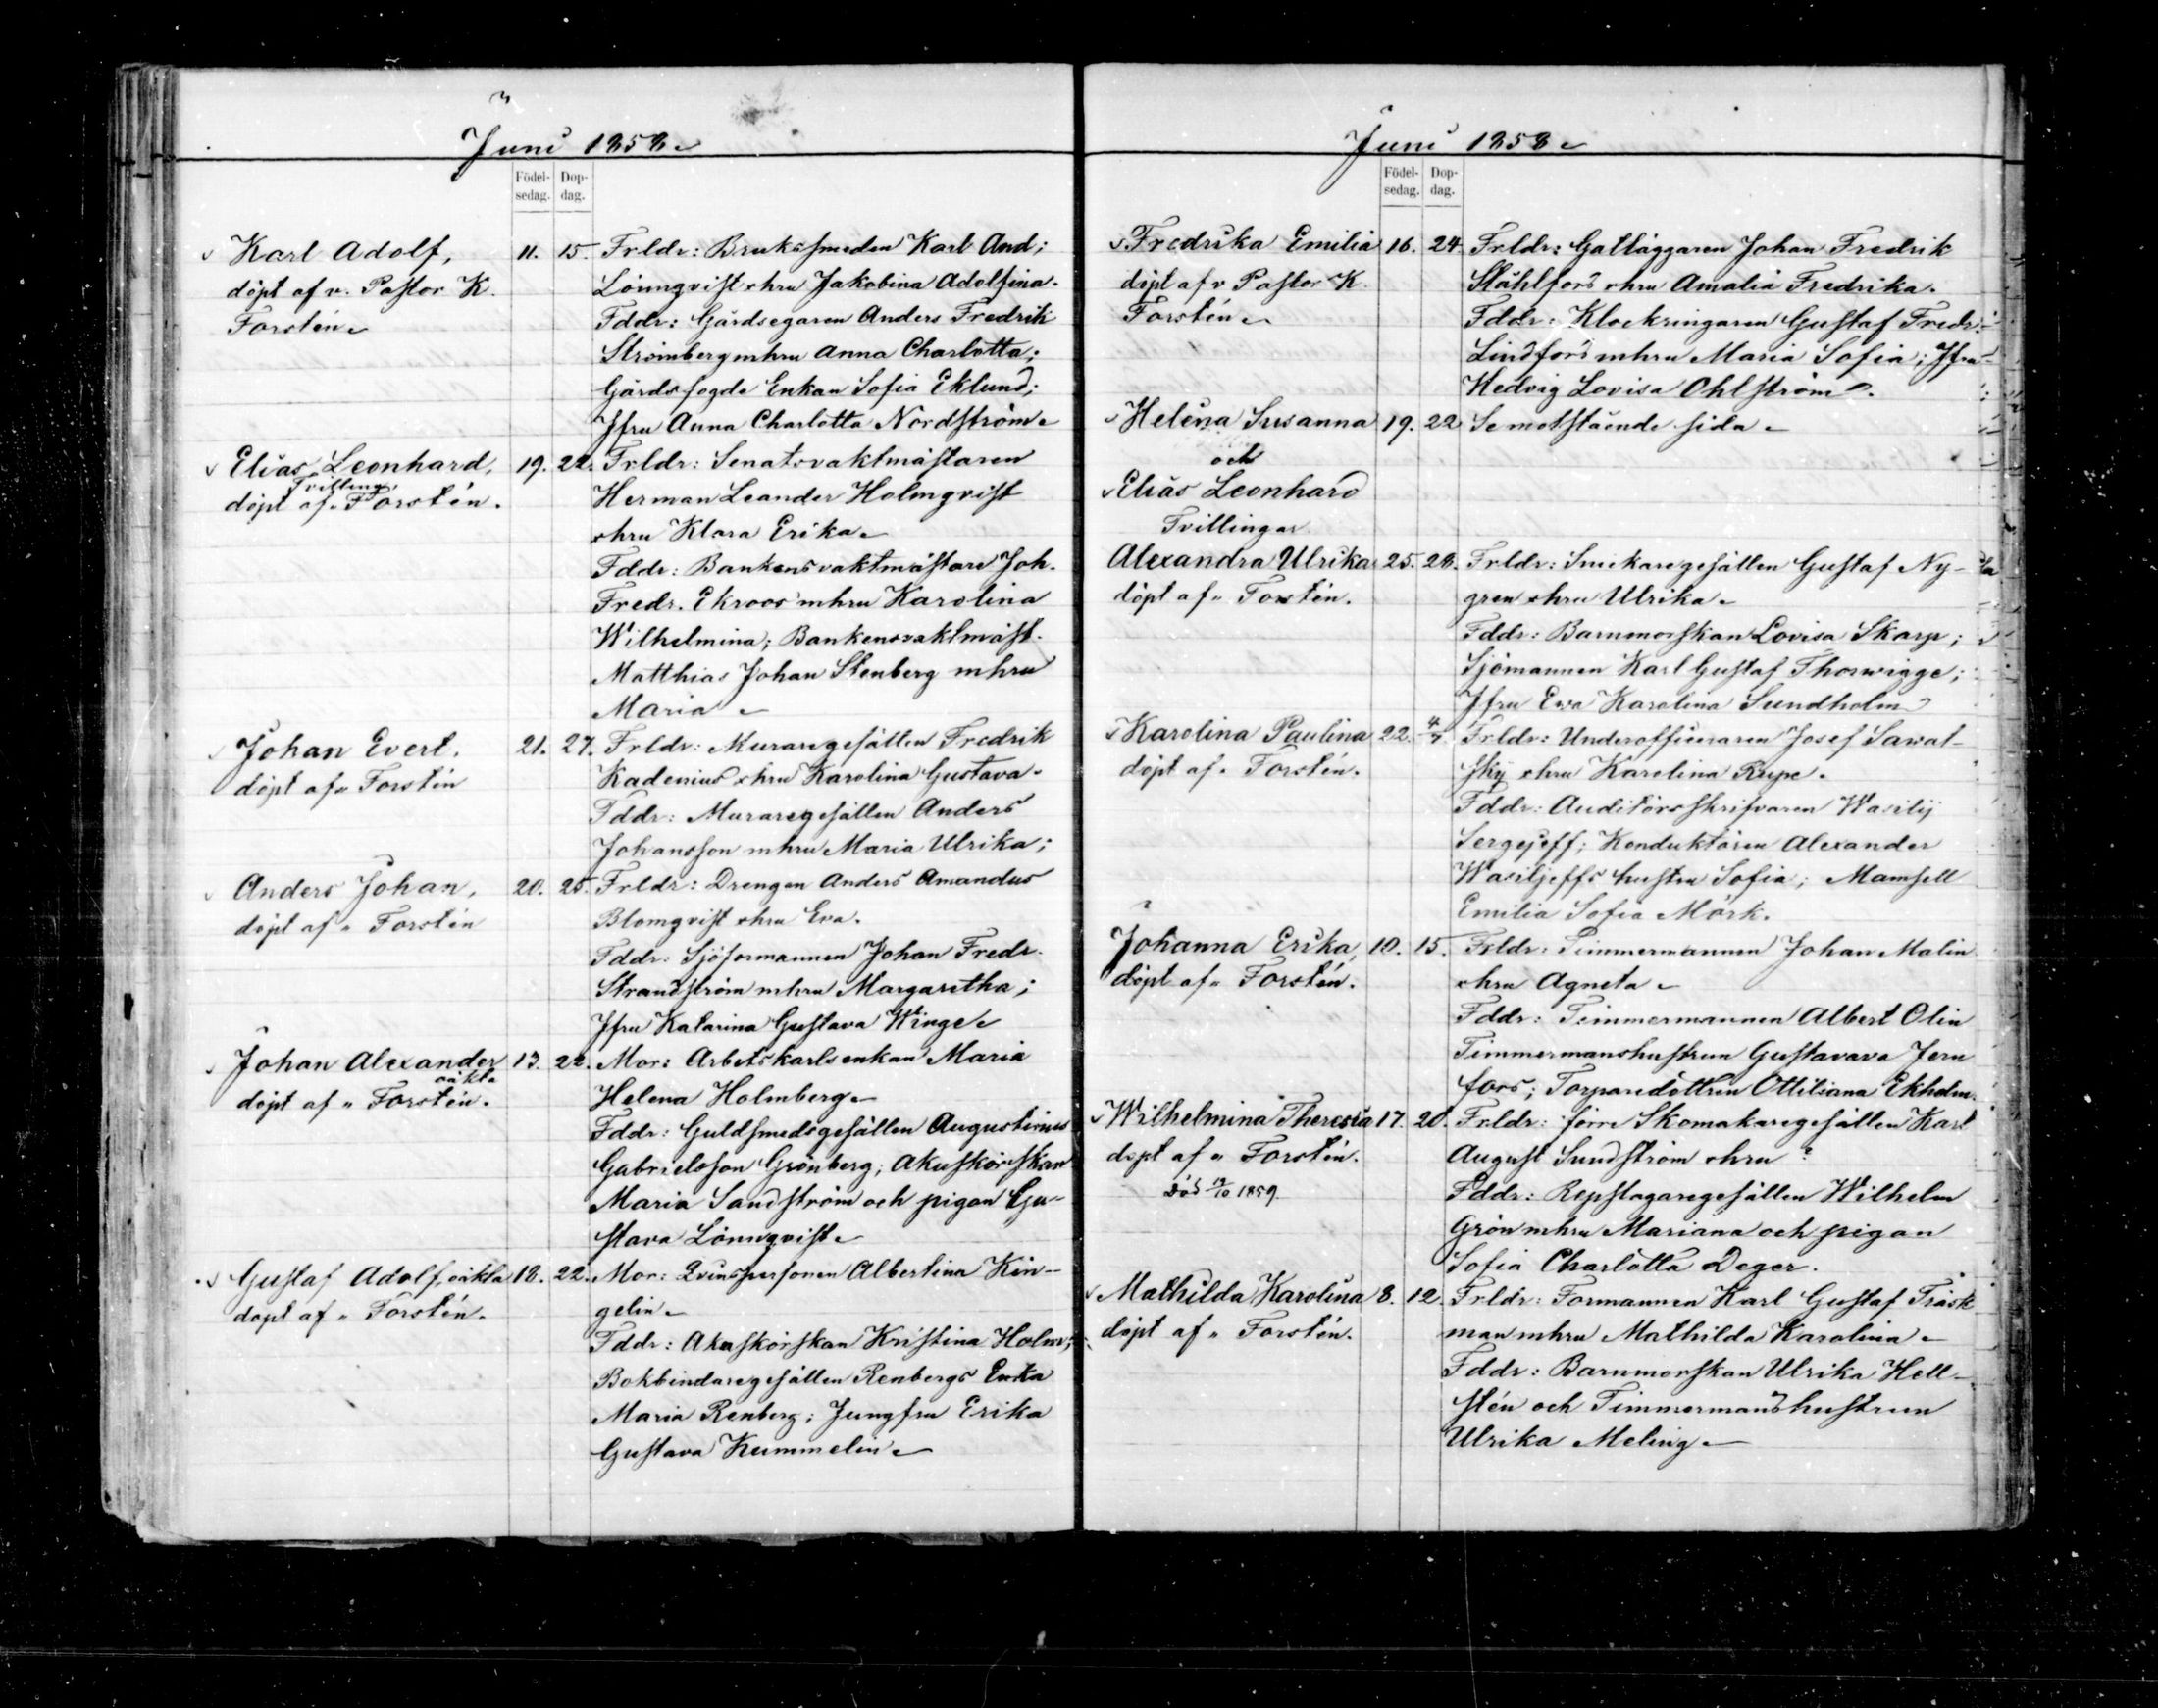 Juni 1858
Födel-
sedag.
Dop-
dag.
Karl Adolf, 11. 15. Frldr: Bruksssmeden Karl And;
döpt af v. Pastor K. Lönnqvist o hru Jakobina Adolfina.
Forstén Fddr: Gårdsegaren Anders Fredrik
Strömberg m hru Anna Charlotta;
Gårdsfogde Enkan Sofia Eklund;
Jfru Anna Charlotta Nordström
Elias Leonhard, 19. 22. Frldr: Senatsvaktmästaren
Tvilling,
döpt af " Forstén. Herman Leander Holmqvist
o hru Klara Erika
Fddr: Bankensvaktmästare Joh.
Fredr. Ekroos m hru Karolina
Wilhelmina; Bankensvaktmäst.
Matthias Johan Stenberg m hru
Maria
Johan Evert. 21. 27. Frldr: Muraregesällen Fredrik
döpt af " Forstén Kadenius o hru Karolina Gustava.
Fddr: Muraregesällen Anders
Johansson m hru Maria Ulrika;
Anders Johan, 20. 25. Frldr: Drengen Anders Amandus
döpt af " Forstén Blomqvist o hru Eva.
Fddr: Sjöformannen Johan Fredr.
Strandström m hru Margaretha;
Jfru Katarina Gustava Winge
Johan Alexander 13. 22. Mor: Arbetskarlsenkan Maria
oäkta
döpt af " Forstén. Helena Holmberg
Fddr: Guldsmedsgesällen Augustinus
Gabrielsson Grönberg; Akuskörskan
Maria Sandström och pigan Gu-
stava Lönnqvist
Gustaf Adolf, oäkta 18. 22. Mor: Qvinspersonen Albertina Kin-
döpt af " Forstén. gelin
Fddr: Akuskörskan Kristina Holm;
Bokbindaregesällen Renbergs Enka
Maria Renberg; Jungfru Erika
Gustava Kummelin
Juni 1858
Födel-
sedag.
Dop-
dag.
Fredrika Emilia 16. 24. Frldr: Gatläggaren Johan Fredrik
döpt af v Pastor K. Ståhlfors o hru Amalia Fredrika.
Forstén Fddr: Klockringaren Gustaf Fredr:
Lindfors m hru Maria Sofia; Jfru
Hedvig Lovisa Ohlström.
Helena Susanna 19. 22 Se motstående sida
och
Elias Leonhard
Tvillingar
Alexandra Ulrika 25. 28. Frldr: Snickaregesällen Gustaf Ny-
döpt af " Forstén. gren o hru Ulrika
Fddr: Barnmorskan Lovisa Skarp;
Sjömannen Karl Gustaf Thorwigge;
Jfru Ewa Karolina Sundholm
Karolina Paulina 22. 4/7. Frldr: Underofficeraren Josef Sawat-
döpt af " Forstén. sky o hru Karolina Rupe.
Fddr: Auditörsskrifvaren Wasilij
Sergejeff; Konduktören Alexander
Wasiljeffs hustru Sofia; Mamsell
Emilia Sofia Mörk.
Johanna Erika, 10. 15. Frldr: Timmermannen Johan Malin
döpt af " Forstén. o hru Agneta
Fddr: Timmermannen Albert Olin
Timmermanshustrun Gustavava Jern
fors; Torparedottren Ottiliana Ekholm.
Wilhelmina Theresia 17. 20. Frldr: förre Skomakaregesällen Karl
döpt af " Forstén. August Sundström o hru ?
Död 12/10 1859. Fddr: Repslagaregesällen Wilhelm
Grön m hru Mariana och pigan
Sofia Charlotta Deger.
Mathilda Karolina 8. 12. Frldr: Formannen Karl Gustaf Träsk
döpt af " Forstén. man m hru Mathilda Karolina
Fddr: Barnmorskan Ulrika Hell-
stén och Timmermanshustrun
Ulrika Meling